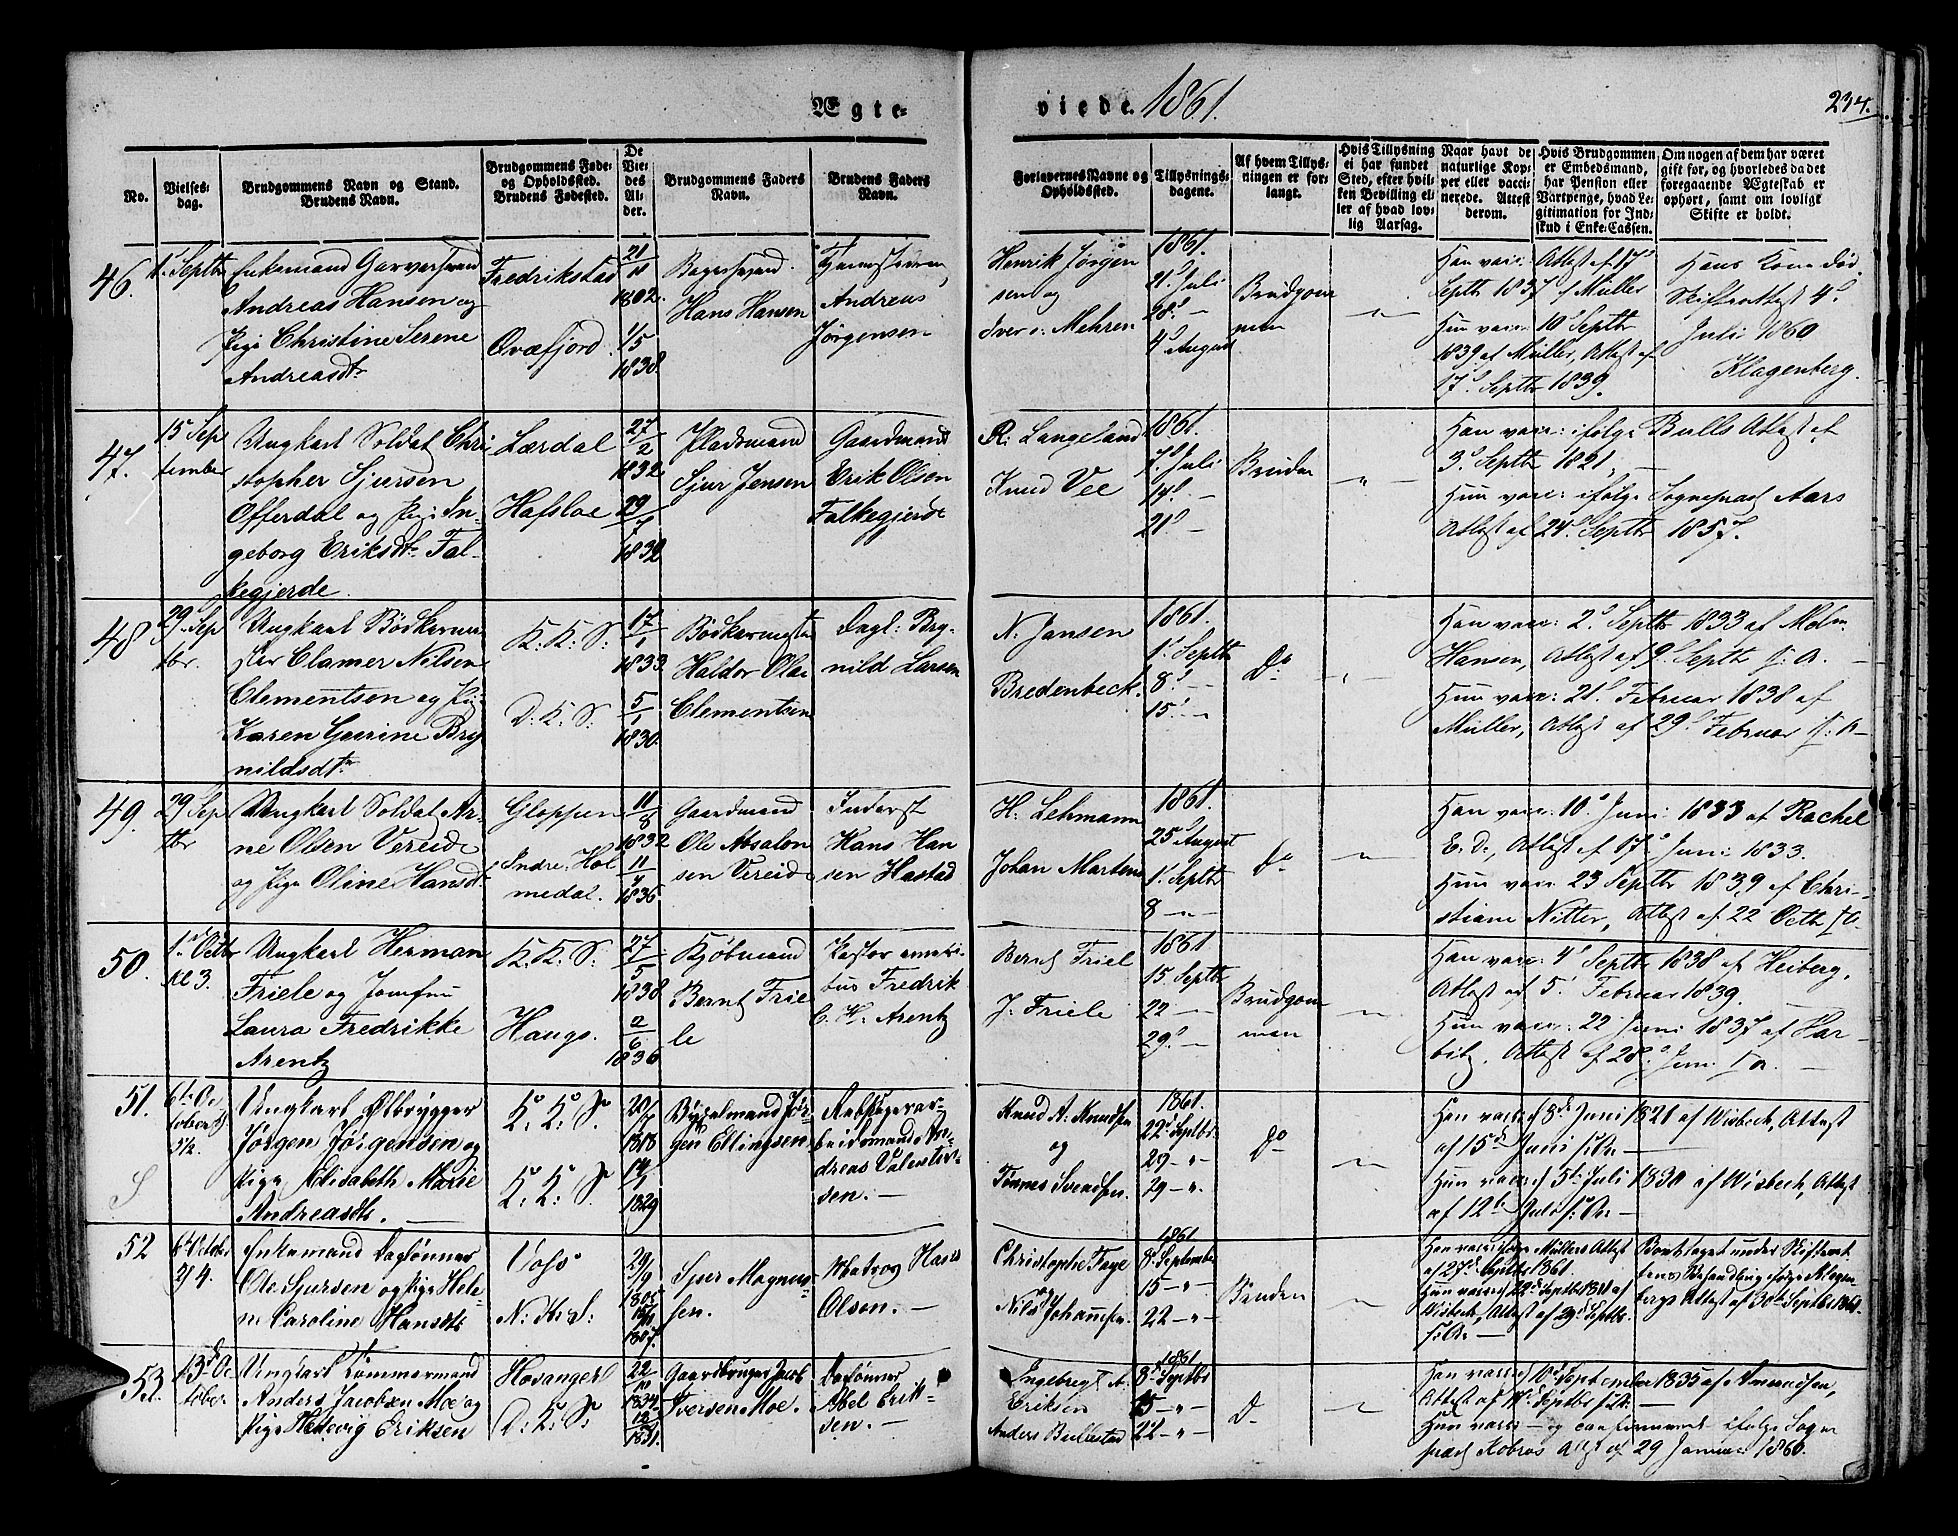 Ægte-
viede. 1861.
234.
No.
Vielses-
dag.
Brudgommens Navn og Stand.
Brudens Navn.
Brudgommens Føde-
og Opholdssted.
Brudens Fødested.
De
Vie-
des
Al-
der.
Brudgommens Faders
Navn.
Brudens Faders
Navn.
Forlovernes Navne og
Opholdssted.
Tillysnings-
dagene.
Af hvem Tillys-
ningen er for-
langt.
Hvis Tillysning
ei har fundet
Sted, efter hvil-
ken Bevilling el-
ler af hvad lov-
lig Aarsag.
Naar havt de
naturlige Kop-
per eller vacci-
nerede. Attest
derom.
Hvis Brudgommen
er Embedsmand,
har Pension eller
Vartpenge, hvad Le-
gitimation for Ind-
skud i Enke-Cassen.
Om nogen af dem har været
gift før, og hvorledes da det
foregaaende Ægteskab er
ophørt, samt om lovligt
Skifte er holdt.
46.
1. Septbr
Enkemand Garversvend
Andreas Hansen og
Pige Christine Serene
Andreasdtr
Fredrikstad
Qvæfjord
21/11
1802.
1/5
1838.
Bagersvend
Hans Hansen
Andreas
Jørgensen
Henrik Jørgen
sen og
Iver O. Mehren
1861.
21. Juli
28. —
4. August
Brudgom
men
Han vacc:
Septbr 1837 af Müller
Attest af 17.
Hun vacc: 10. Septbr
1839 af Müller, Attest af
17. Septbr 1839.
Hans Kone død.
Skifteattest 4.
Juli 1860
Klagenberg.
47.
15 Sep
tember
Ungkarl Soldat Chri
stopher Sjursen
Offerdal og Pige In-
geborg Eriksdtr Fal-
kegjerde.
Lærdal
Hafsloe
27/2
1832
29/7
1832
Pladsmand
Sjur Jensen
Gaardmand
Erik Olsen
Falkegjerde
R: Langeland
Knud Vee
1861.
7. Juli
14. —
21.
Bruden
Han vacc: ifølge Bulls Attest af
3. Septbr 1821.
Hun vacc: ifølge Sognepræst Aars
Attest af 24. Septbr 1857.
48
29. Sep
tbr.
Ungkarl Bødkerme
ster Clamer Nilsen
Clementsen og Pige
Karen Gurine Bry
nildsdtr
K: K: S:
D: K: S:
17/1
1833.
5/1
1830.
Bødkermester
Haldor Olai
Clementsen
Dagl: Bry-
nild Larsen
N: Jansen
Bredenbeck.
1861.
1. Septbr
8. —
15. —
Do
Han vacc: 2. Septbr 1833 af Mdm.
Hansen, Attest af 9. Septbr s. A. —
Hun vacc: 21. Februar 1838 af
Müller, Attest af 29. Februar s. A —
49.
29 Sep
tbr
Ungkarl Soldat Ar-
ne Olsen Vereide
og Pige Oline Hansdtr
Gloppen
Indre. Hol
medal.
11/8
1832
11/4
1836.
Gaardmand
Ole Absalon
sen Vereid
Inderst
Hans Han
sen Hastad
H: Lehmann
Johan Martens
1861.
25 August
1. Septbr
8 — —
Do
Han vacc: 10. Juni 1833 af Rachel
E. D., Attest af 17. Juni 1833.
Hun vacc 23 Septbr 1839 af Chri-
stiane Nitter, Attest af 22 Octb s. A.
50.
1. Octbr
Kl 3.
Ungkarl Herman
Friele og Jomfru
Laura Fredrikke
Arentz
K: K: S:
Haugs.
27/5
1838
2/6
1836
Kjøbmand
Bernt Frie
le
Pastor emeri
tus Fredrik
C. H: Arentz
Bernt Friele
J: Friele
1861
15. Septbr
22 —
29. —
Brudgom
men
Han vacc: 4. Septbr 1838 af Heiberg.
Attest af 5. Februar 1839.
Hun vacc: 22 Juni 1837 af Har-
bitz. Attest af 28. Juni s. A. —
51.
6te Oc
tober
5½.
S
Ungkarl Ølbrygger
Jørgen Jørgensen og
Pige Elisabeth Marie
Andreasdtr. —
K: K: S:
K: K: S:
20/7
1818
14/1
1829
Jør-
gen Ellingsen
Aabyggerar-
beidsmand An-
dreas Valentin-
sen. —
Knud A. Knudsen
og
Tønnes Svendsen.
1861.
22. Septbr.
29 — „
29 — „
Do
Han vacc. 8de Juni 1821 af Wisbech, Attest
af 15de Juni s: A: —
Hun vacc. 5te Juli 1830 af Wisbech, Attest
af 12te Juli s: A: —
52
6te October
Enkemand Daglønner
Ole Sjursen og Pige Hele-
ne Caroline Hansdtr
Voss
N: K: S:
29/9
1805
1807.
Sjur Magnus-
sen.
Matros Hans
Olsen. —
Christopher Faye
og
Nils Johannsen.
1861
8. September
15 — „
22 — „
Bruden
Han vacc. ifølge Müllers Attest
af 27de Septbr 1861.
Hun vacc. 22de Septbr 1811 af
Wisbech, Attest af 29de Septbr.
s: A: —
Boet taget under Skifteret
tens Behandling ifølge Klagen
bergs Attest af 30te Septbr 1861.
53.
13de Oc
tober.
Ungkarl Tømmermand
Anders Jacobsen Moe og
Pige Hedevig Eriksen
Hosanger
D: K: S:
22/11
1834
1831.
Gaardbruger Jacob
Iversen Moe.
Daglønner
Abel Erik-
sen.
Ingebregt A.
Eriksen
Anders Bullestad
1861
8de Septbr
15 — „
22 — „
Do
Han vacc. 10de September 1835 af Amundsen,
Attest af 14de Septbr s: A: —
Hun vacc. — og confirmeret ifølge Sogne
præst Kobros Attest af 29 Januar 1860.